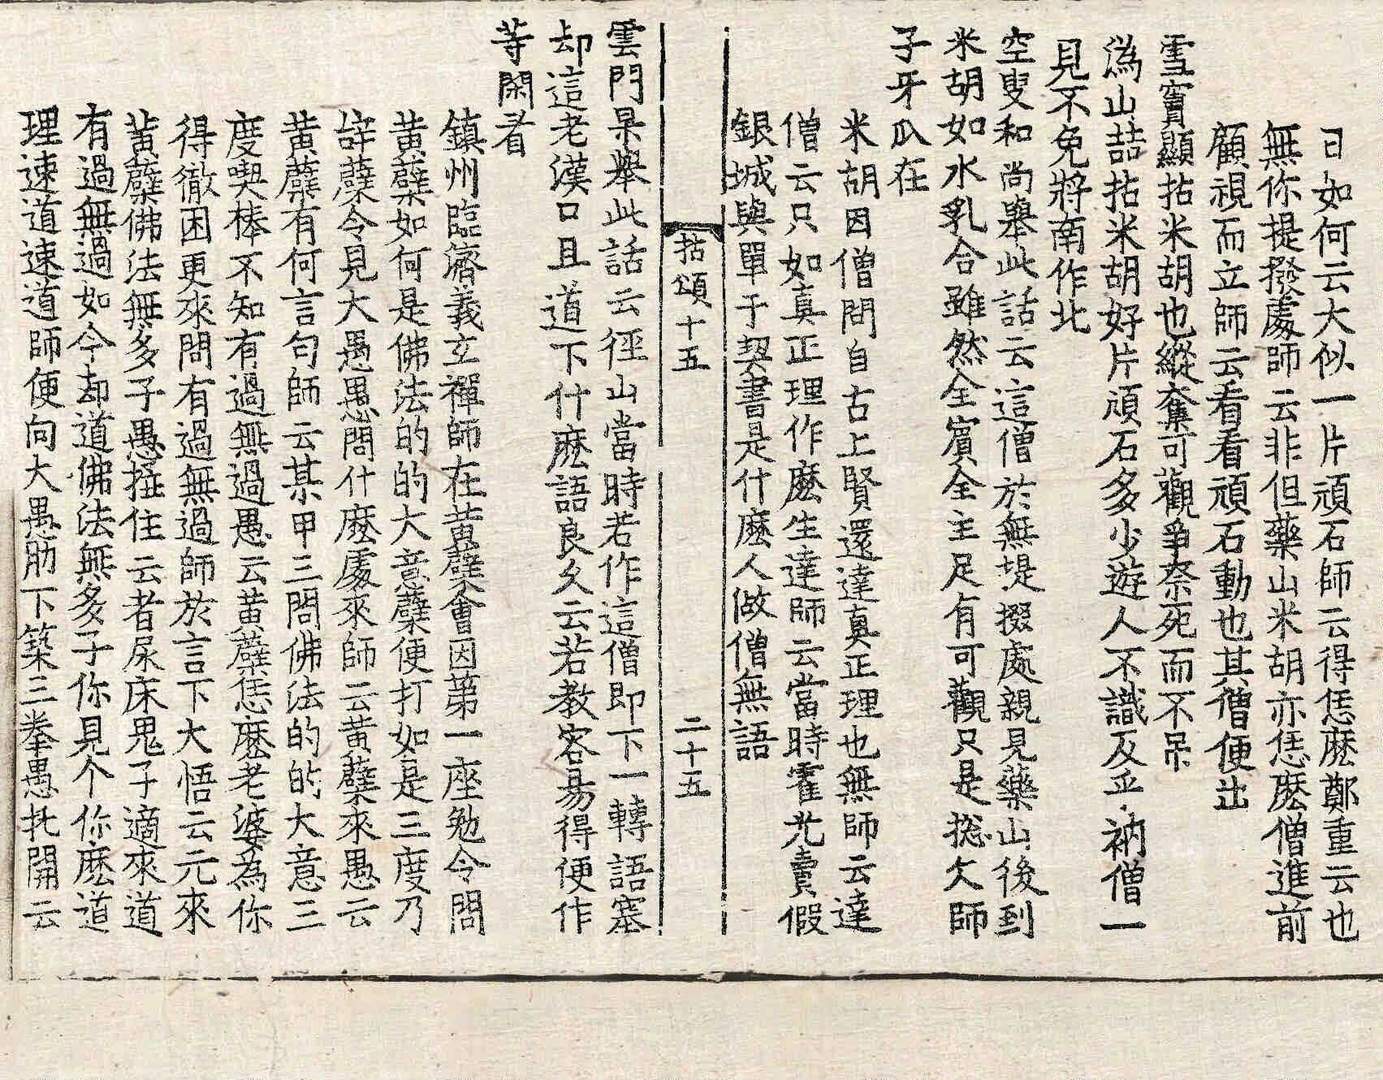 日如何云大似一片頑石師云得恁麽鄭重云也
無你提撥處師云非但藥山米胡亦恁麽僧進前
顧視而立師云看看頑石動也其僧便出
雪竇顯拈米胡也縱奪可觀爭奈死而不吊
溈山喆拈米胡好片頑石多少遊人不識及乎衲僧一
見不免將南作北
空叟和尚舉此話云這僧於無堤掇處親見藥山後到
米胡如水乳合雖然全賓全主足有可觀只是揔欠師
子牙爪在
米胡因僧問自古上賢還達真正理也無師云達
僧云只如真正理作麽生達師云當時霍光賣假
銀城與單于契書是什麽人做僧無語
拈頌十五
二十五
雲門杲舉此話云徑山當時若作這僧即下一轉語塞
却這老漢口且道下什麽語良久云若教容易得便作
等閑看
鎮州臨濟義玄禪師在黄蘗會因第一座勉令問
黄蘗如何是佛法的的大意蘗便打如是三度乃
辝蘗令見大愚愚問什麽處來師云黄蘗來愚云
黄蘗有何言句師云某甲三問佛法的的大意三
度喫棒不知有過無過愚云黄蘗恁麽老婆為你
得徹困更來問有過無過師於言下大悟云元來
黄蘗佛法無多子愚搊住云者尿床鬼子適來道
有過無過如今却道佛法無多子你見个你麽道
理速道速道師便向大愚肋下築三拳愚托開云